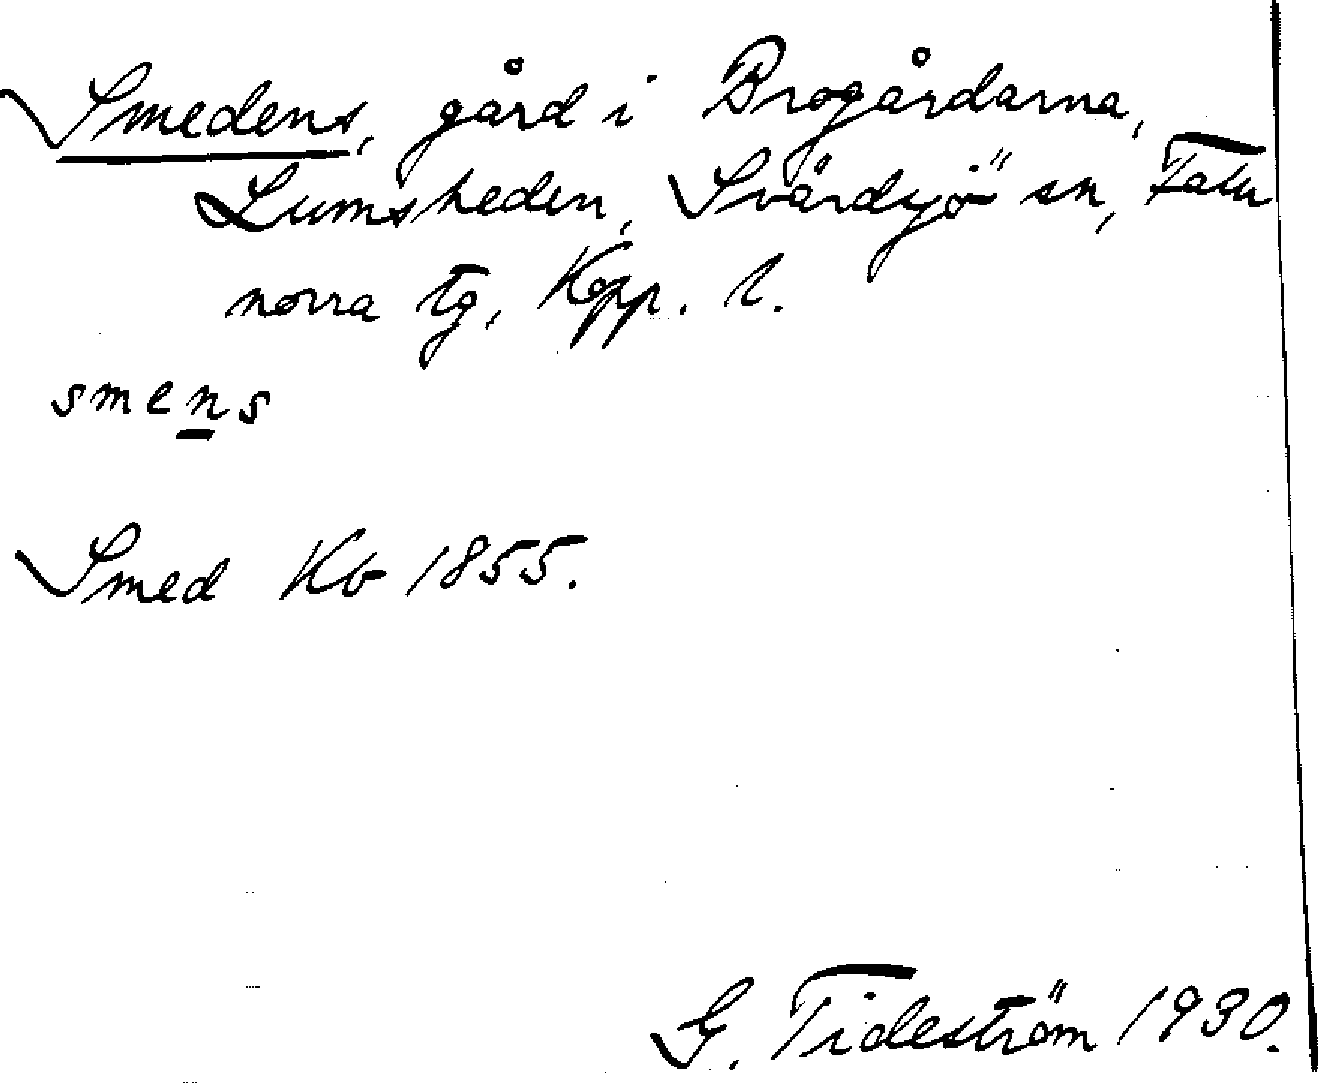 Smedens, gård i Brogårdarna,
Lumsheden, Svärdsjö sn, Falu
norra tg, Kopp. l.
smens
Smed Kb 1855.
G. Tideström 1930.